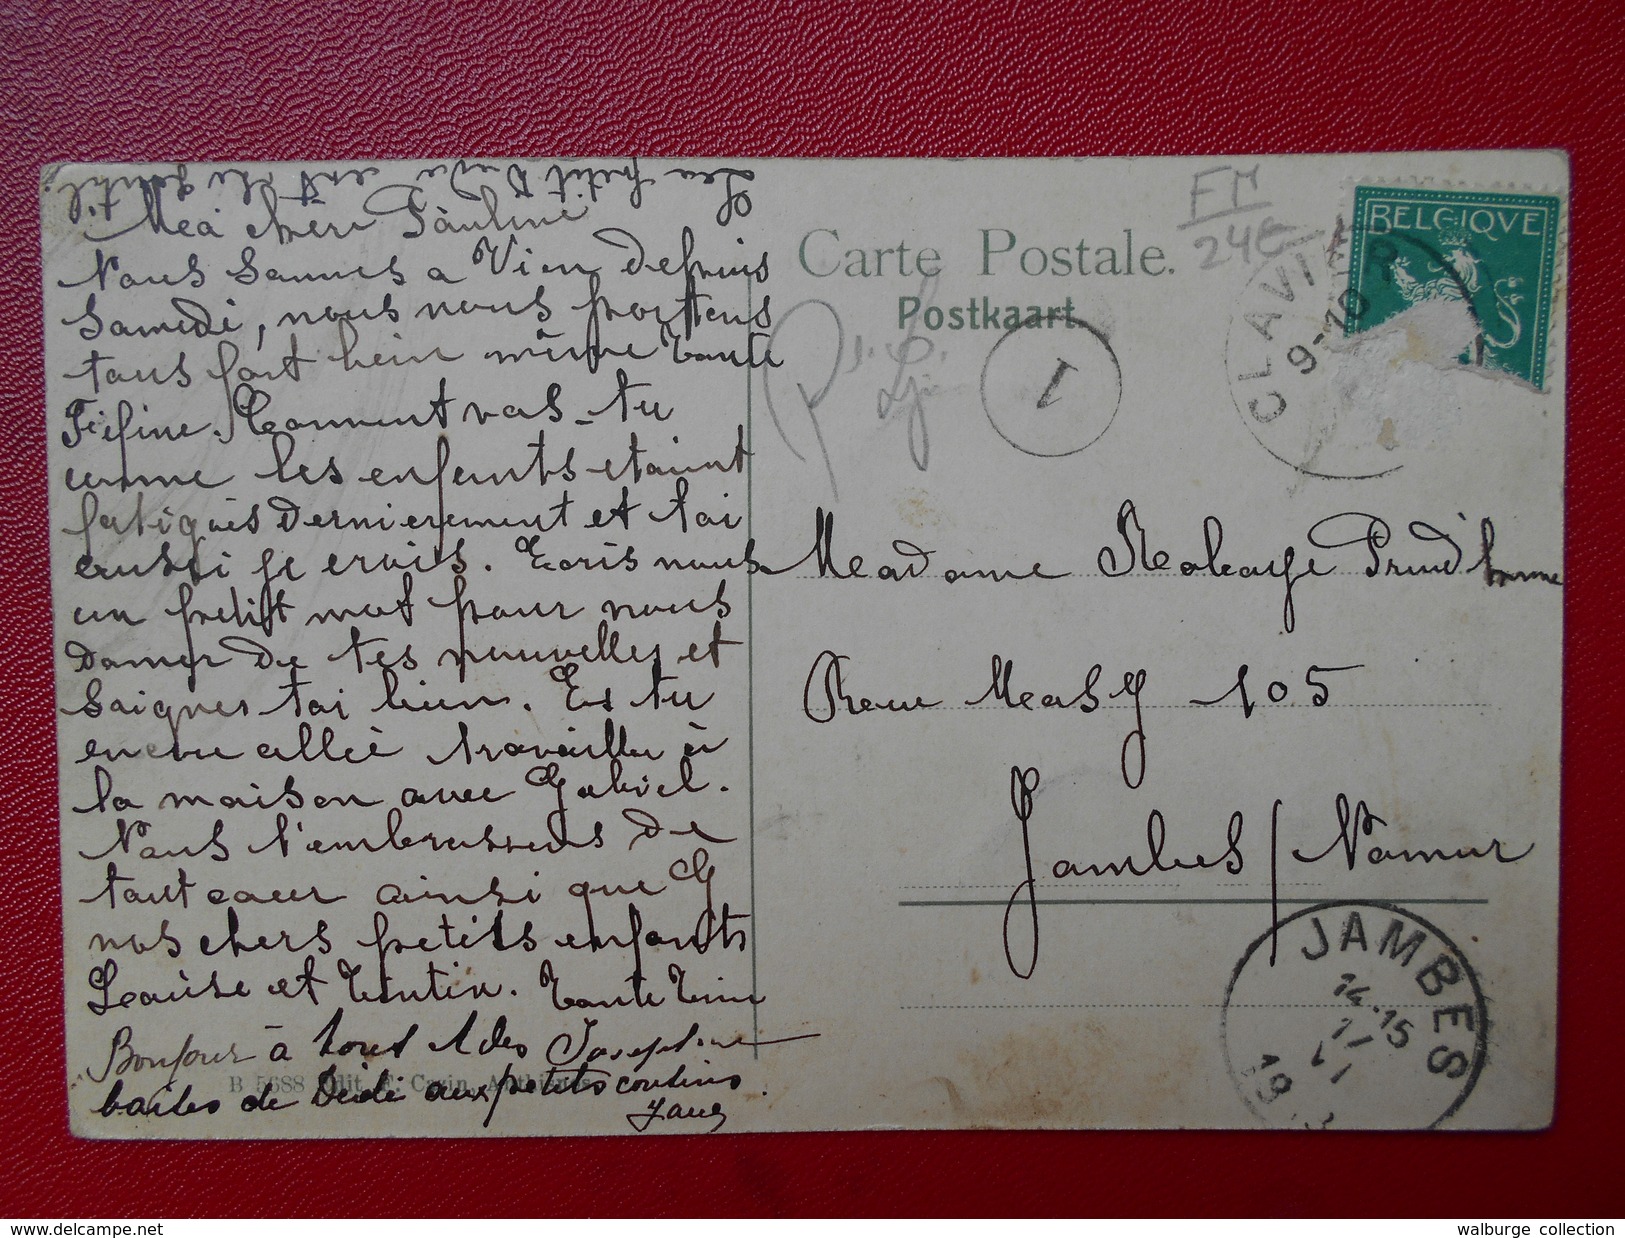 Ma chère Pauline
Nous sommes a Vien depuis
Samedi, nous nous portons
tous fort bien même tante
Fifine. Comment vas-tu
comme les enfants etaient
fatigués dernierement et toi
aussi je crois. Ecris nous
un petit mot pour nous
donner de tes nouvelles et
Soignes toi bien. Es tu
encore allée travailler à
la maison avec Gabriel.
Nous t'embrassons de
tout coeur ainsi que
nos chers petits enfants
Louise et Tintin. Tante Titine
Bonjour à tous Joséphine
baises de Dédé aux petits cousins
Le petit Dédé est the gentil.
B 5688 Edit. F. Cavin, Anthisnes
Carte Postale.
Postkaart.
FM
24E
1
BELGIQUE
CLAVIER
9-10
Madame Delhaye Prud'homme
Rue Masy 105
Jambes / Namur
JAMBES
14-15
11
19
walburge collection
delcampe.net